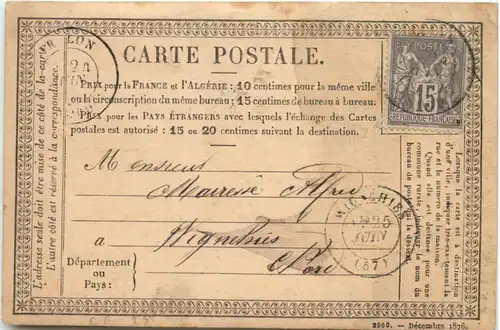 CARTE POSTALE.
PRIX pour la FRANCE et l'ALGÉRIE : 10 centimes pour la même ville
ou la circonscription du même bureau ; 15 centimes de bureau à bureau.
PRIX pour les PAYS ÉTRANGERS avec lesquels l'échange des Cartes
postales est autorisé : 15 ou 20 centimes suivant la destination.
POSTE
15
REPUBLIQUE FRANÇAISE
LON
JUIN
L'adresse seule doit être mise de ce côté de la carte.
L'autre côté est réservé à la correspondance.
Monsieur
Mairesse Alfred
à
Wignehies
Nord
Département
ou
Pays :
WIGNEHIES
25
JUIN
(57)
Lorsque la carte est à destination
d'une ville, indiquer très exactement la
rue et le numéro de la maison.
Quand elle est destinée pour une
commune rurale, indiquer le nom du
bureau de poste qui la dessert.
2960. — Décembre 1876.